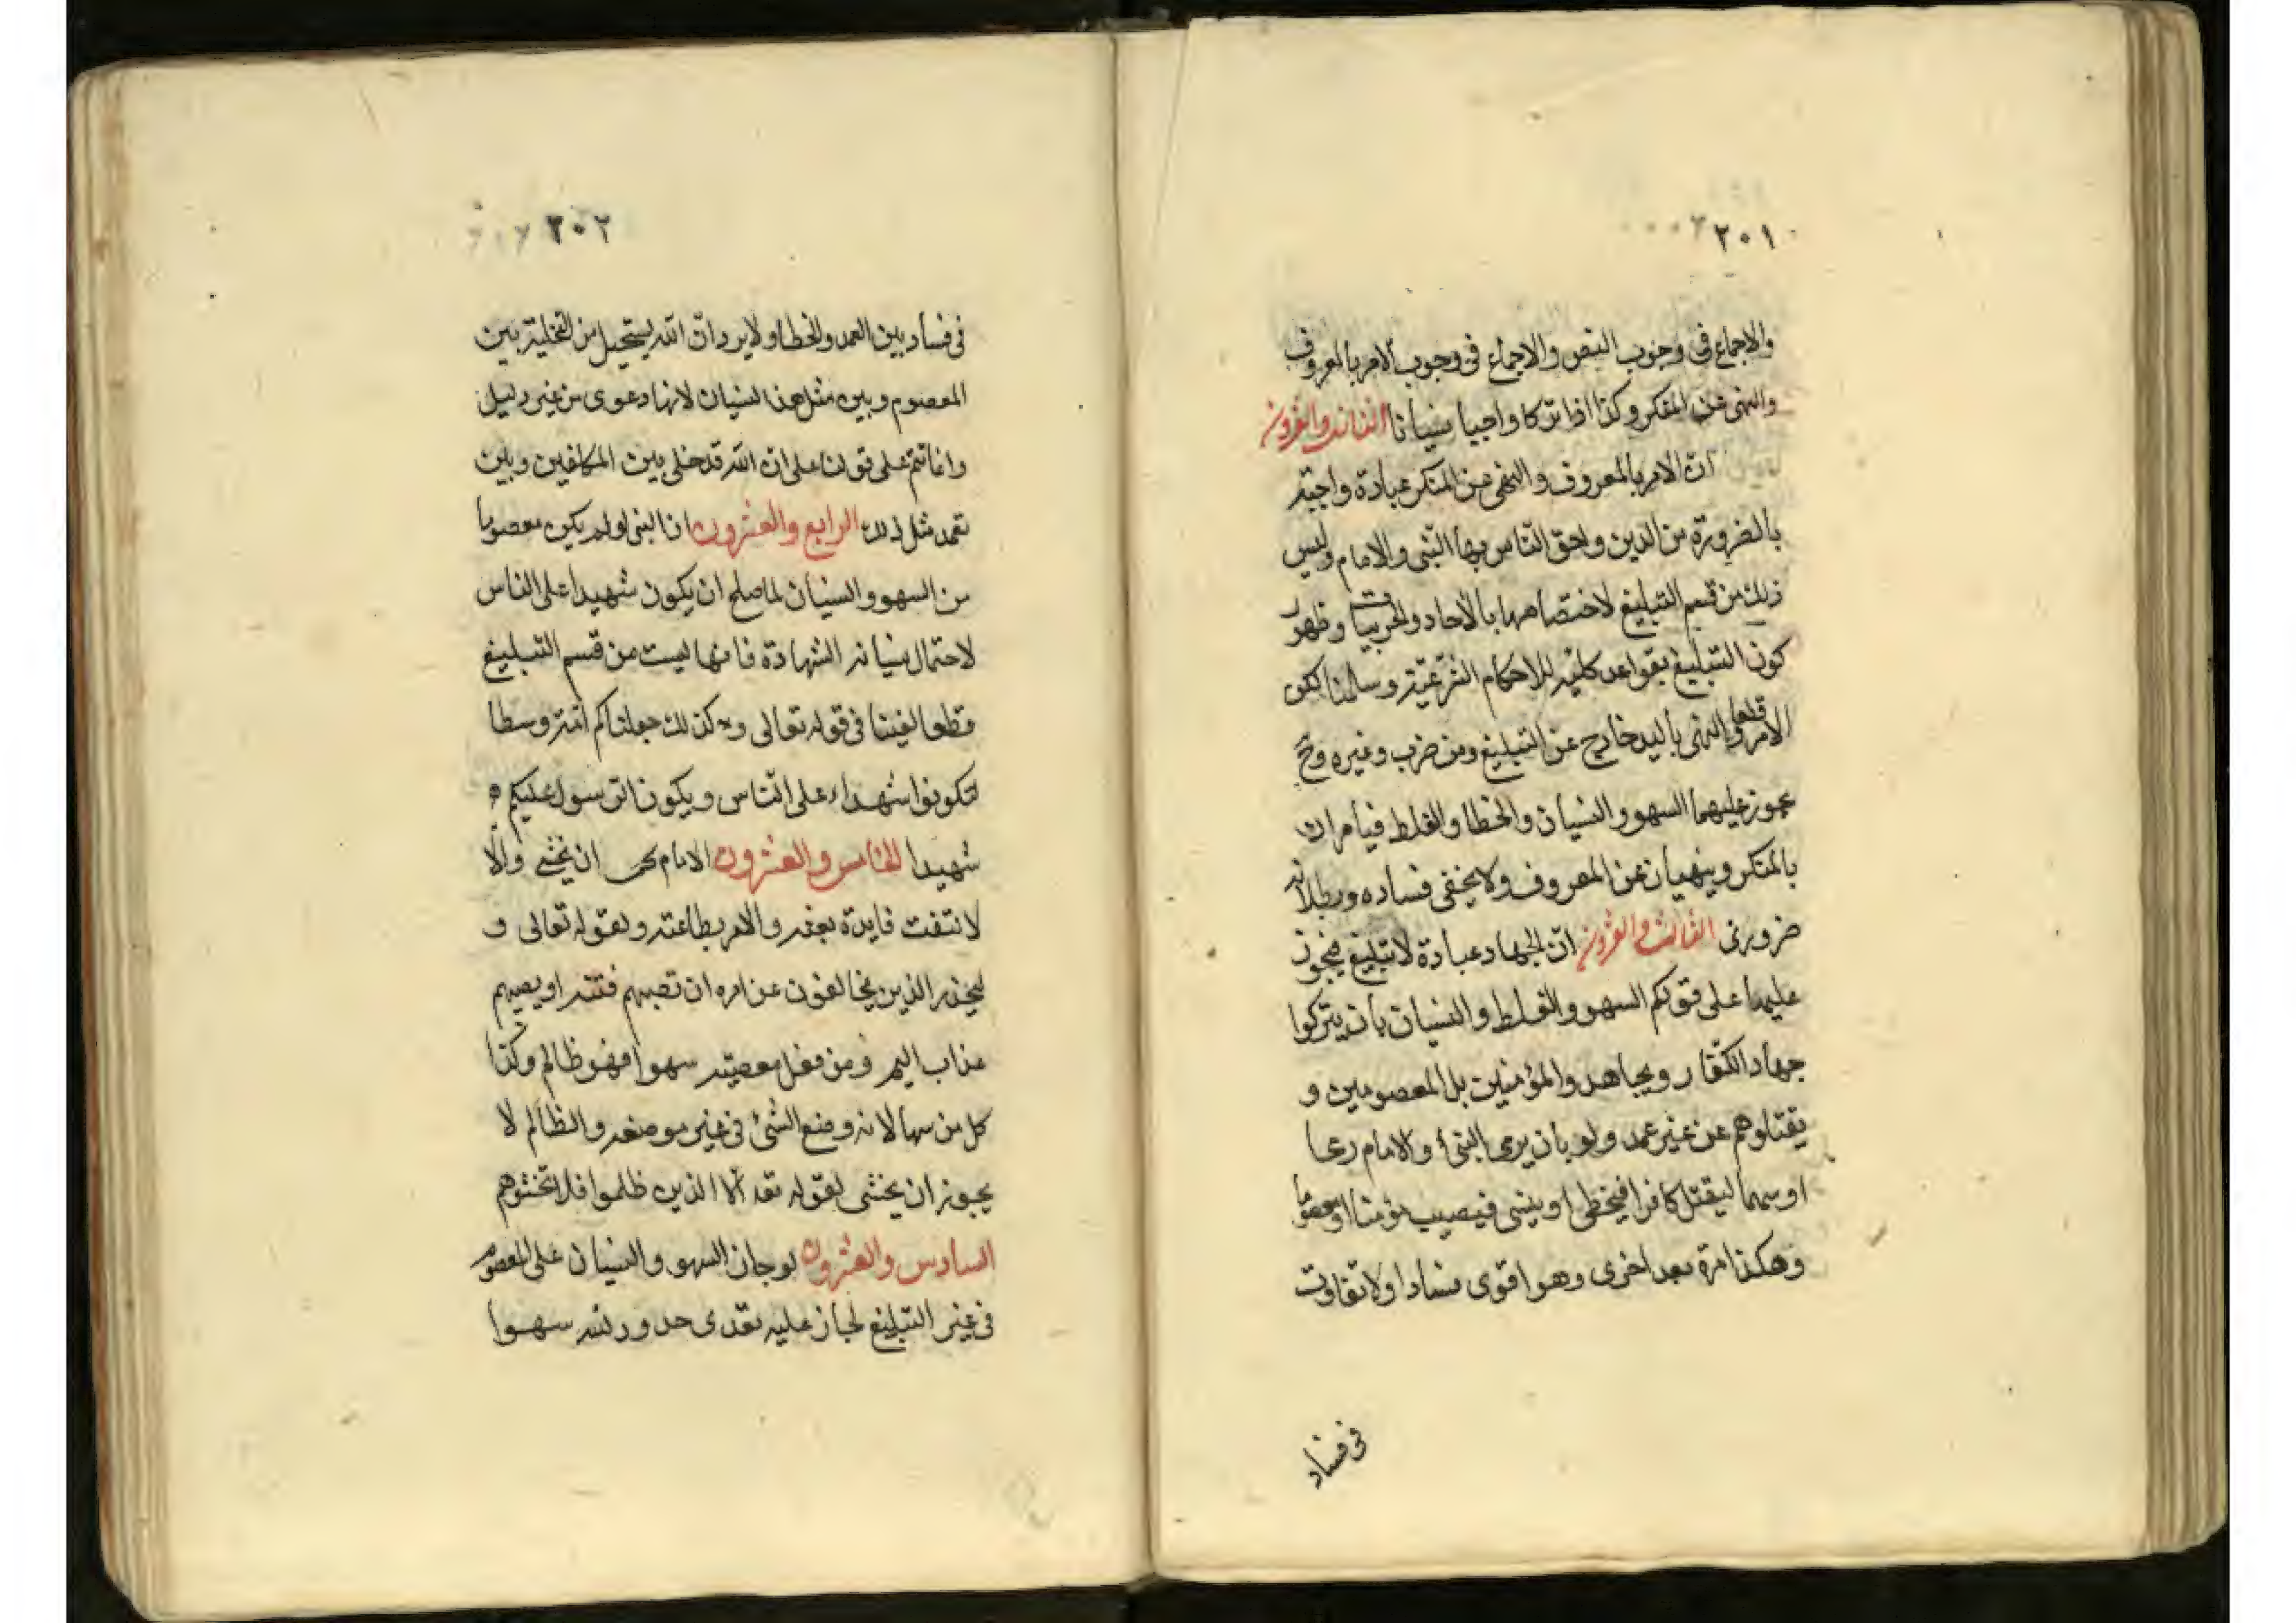 ٢٠١
والاجماع فى وجوب النص والاجماع فى وجوب الامر بالمعروف
والنهى عن المنكر وكذا اذا تركا واجبا نسيانا الثانى والعشرون
ان الامر بالمعروف والنهى عن المنكر عبادة واجبة
بالضرورة من الدين واحق الناس بها النبى والامام وليس
ذلك من قسم التبليغ لاختصاصهما بالآحاد والجزئيات وظهور
كون التبليغ بقواعد كلية للاحكام الشرعية وسلمنا لكن
الامر والنهى باليد خارج عن التبليغ قطعا ومن ضرب وغيره وح
يجوز عليهما السهو والنسيان والخطا والغلط فيأمران
بالمنكر وينهيان عن المعروف ولا يخفى فساده وبطلانه
ضرورى الثالث والعشرون ان الجهاد عبادة لا تبليغ فيجوز
عليهما على قولكم السهو والغلط والنسيان بأن يتركوا
جهاد الكفار ويجاهدوا المؤمنين بل المعصومين و
يقتلوهم عن غير عمد ولو بان يرمى النبى او الامام رمحا
او سهما ليقتل كافرا فيخطى او ينسى فيصيب مؤمنا او معصوما
وهكذا مرة بعد اخرى وهو اقوى فسادا ولا تفاوت
فى فساد
٢٠٢
فى فساد بين العمد والخطا ولا يرد ان الله يستحيل من التخلية بين
المعصوم وبين مثل هذا النسيان لانها دعوى من غير دليل
وانما تتم على قولنا على ان الله قد خلى بين المكلفين وبين
تعمد مثل ذلك الرابع والعشرون ان النبى لو لم يكن معصوما
من السهو والنسيان لما صلح ان يكون شهيدا على الناس
لاحتمال نسيانه الشهادة فانها ليست من قسم التبليغ
قطعا لغينا فى قوله تعالى وكذلك جعلناكم امة وسطا
لتكونوا شهداء على الناس ويكون الرسول عليكم
شهيدا الخامس والعشرون الامام يجب ان يخشى والا
لانتفت فايدة بعثه والامر بطاعته ولقوله تعالى و
ليحذر الذين يخالفون عن امره ان تصيبهم فتنة او يصيبهم
عذاب اليم ومن فعل معصية سهوا فهو ظالم وكذا
كل من سها لانه وضع الشئ فى غير موضعه والظالم لا
يجوز ان يخشى لقوله تعه الا الذين ظلموا فلا تخشوهم
السادس والعشرون لو جاز السهو والنسيان على المعصوم
فى غير التبليغ لجاز عليه تعدى حدود الله سهوا